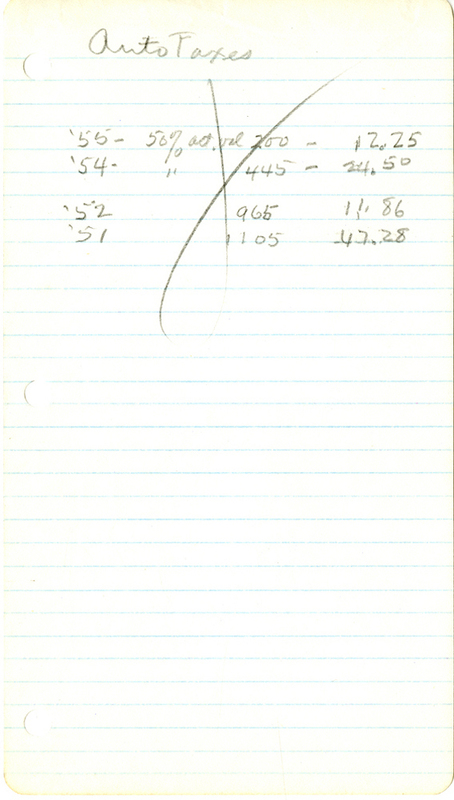 Auto Taxes
'55 - 50% act. val 200 - 12.25
'54 - " 445 - 24.50
'52 965 86
'51 1105 47.28